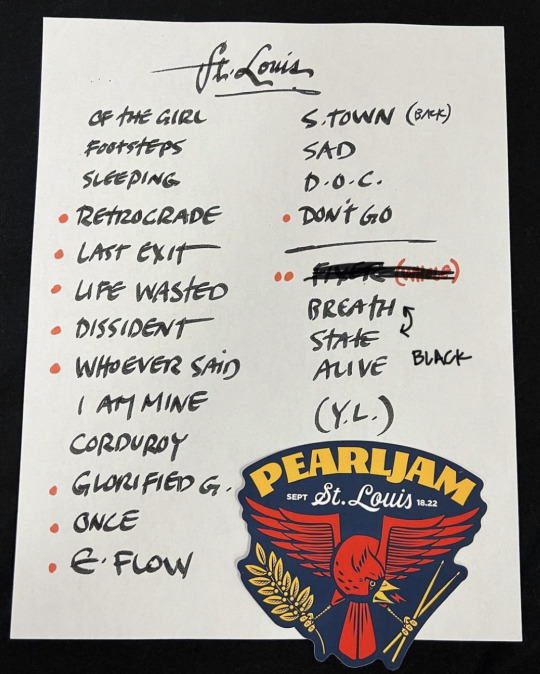 St. Louis
OF THE GIRL
FOOTSTEPS
SLEEPING
RETROGRADE
LAST EXIT
LIFE WASTED
DISSIDENT
WHOEVER SAID
I AM MINE
CORDUROY
GLORIFIED G.
ONCE
E. FLOW
S. TOWN (BACK)
SAD
D.O.C.
DON'T GO
FIXER
BREATH
STATE
BLACK
ALIVE
(Y.L.)
PEARL JAM
SEPT St. Louis 18.22